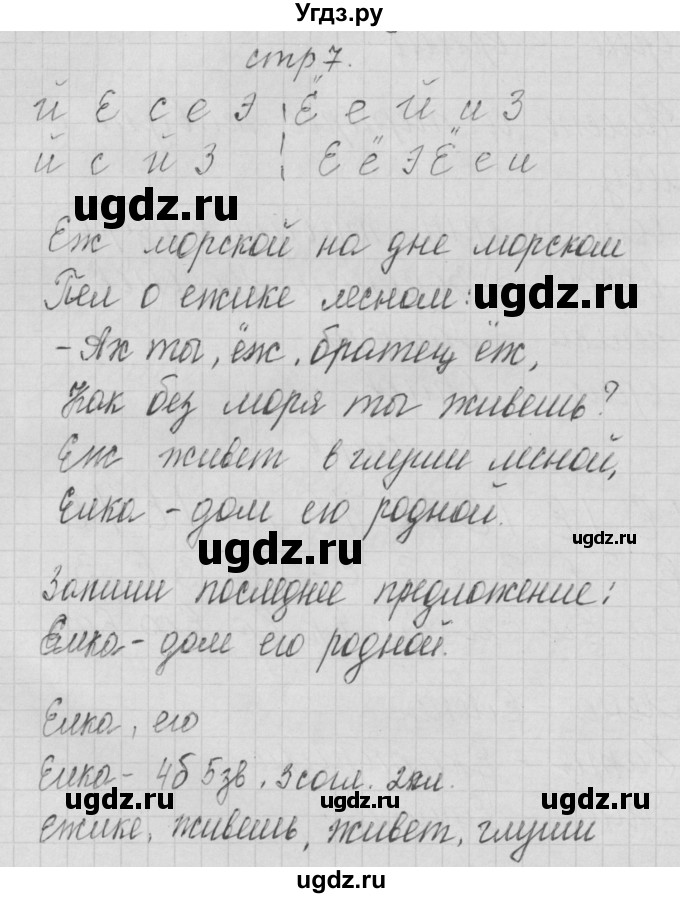 Угдз.ру
стр 7.
й Е с е Э ¦ Ё е й и З
й с й З ¦ Е ё Э Ё е и
ugdz.ru
Еж морской на дне морском
Пел о ежике лесном:
ugdz.ru
- Ах ты, ёж, братец ёж,
Как без моря ты живешь?
Еж живет в глуши лесной,
Елка - дом его родной.
ugdz.ru
ugdz.ru
Запиши последнее предложение:
Елка - дом его родной.
Елка, его
Елка - 4б 5зв, 3согл. 2гл.
ugdz.ru
ugdz.ru
Ежике, живешь, живет, глуши
ugdz.ru